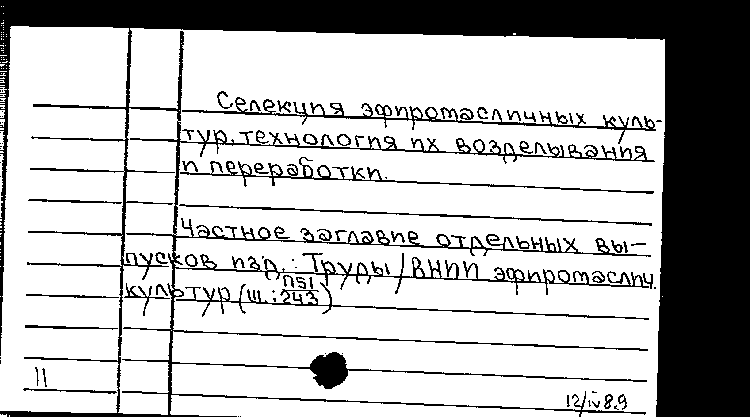 Селекция эфиромасличных куль-
тур, технология их возделывания
и переработки.
Частное заглавие отдельных вы-
пусков изд.: Труды/ВНИИ эфиромаслич.
культур (Ш.: П51/243)
11
12/IV 89